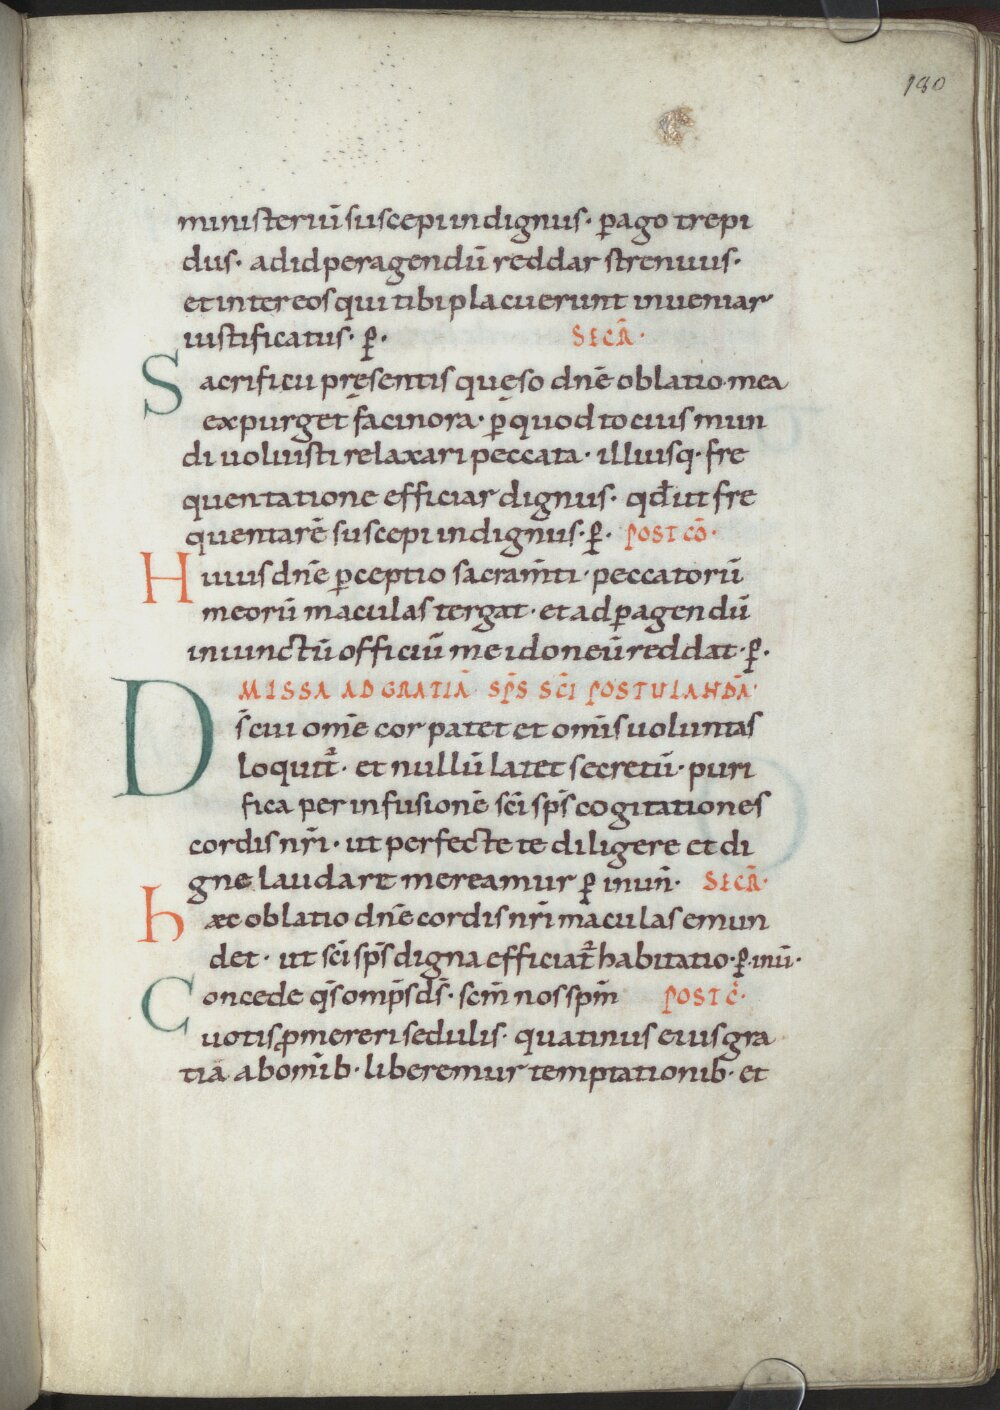 180
ministeriū suscepi indignus· ꝑago trepi
dus· ad id peragendū reddar strenuus·
et inter eos qui tibi placuerunt inueniar
iustificatus· ꝑ· SECR̄·
Sacrificii pręsentis quęso dn̄e oblatio mea
expurget facinora· ꝑ quod tocius mun
di uoluisti relaxari peccata· illiusq· fre
quentatione efficiar dignus· qd̄ ut fre
quentarē suscepi indignus· ꝑ· POST CŌ·
Huius dn̄e ꝑceptio sacram̄ti· peccatorū
meorū maculas tergat· et ad ꝑagendū
iniunctū officiū me idoneū reddat· ꝑ·
MISSA AD GRATIĀ SP̄S SC̄I POSTULANDĀ·
D̄s cui om̄e cor patet et om̄is uoluntas
loquit̄· et nullū latet secretū· puri
fica per infusionē sc̄i sp̄s cogitationes
cordis nr̄i· ut perfecte te diligere et di
gne laudare mereamur ꝑ in un̄· SECR̄·
hæc oblatio dn̄e cordis nr̄i maculas emun
det· ut sc̄i sp̄s digna efficiat̄ habitatio· ꝑ· in ū·
Concede qs̄ omp̄s ds̄· sc̄m nos sp̄m POST C̄·
uotis ꝓmereri sedulis· quatinus eius gra
tiā ab om̄ib· liberemur temptationib· et